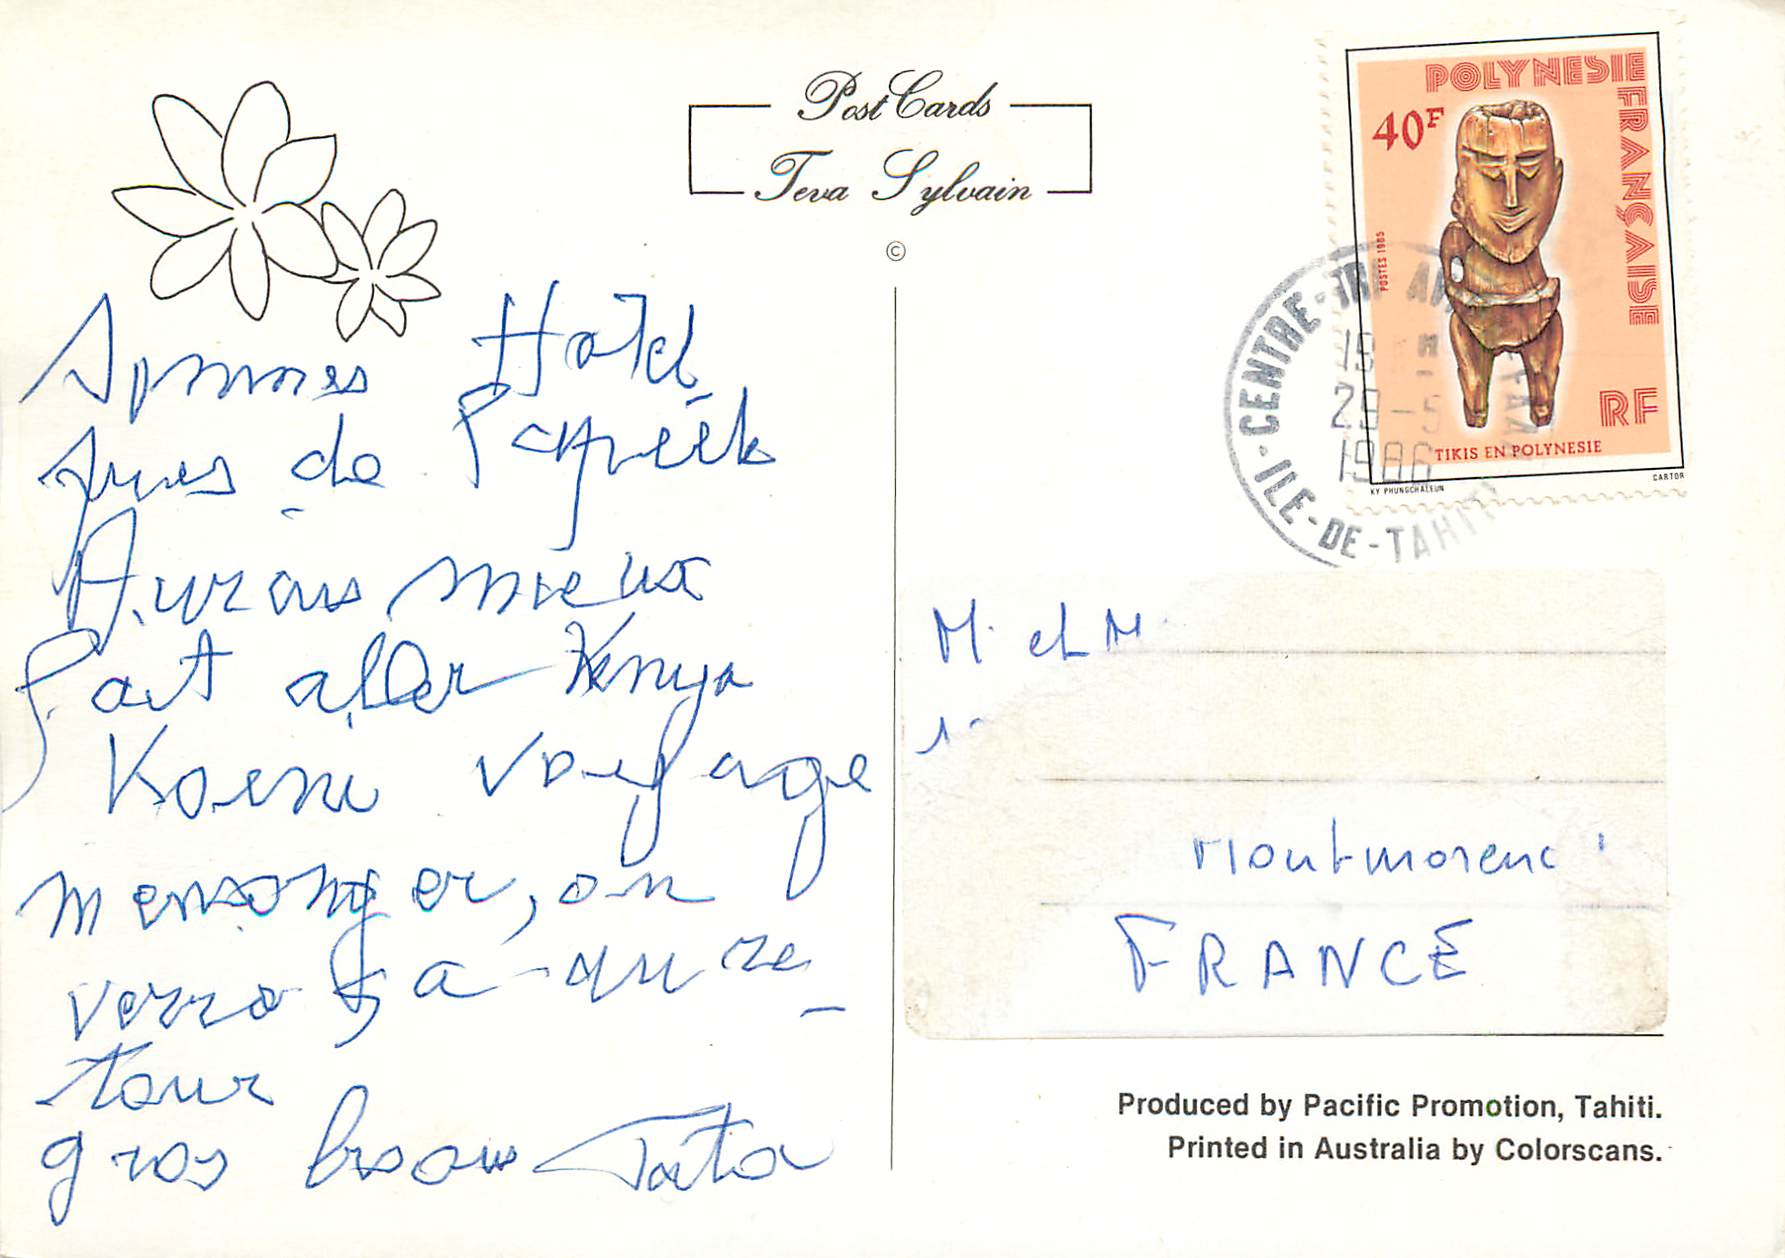 Post Cards
Teva Sylvain
©
POLYNESIE FRANÇAISE
40F
POSTES 1985
RF
TIKIS EN POLYNESIE
KY PHUNGCHALEUN
CARTOR
CENTRE-TRI-
ILE-DE-TAHITI
29-5
1986
Hotel
près de Papeete
Aurais mieux
fait aller Kenya
voyage
mensonger, on
verra ça
tour
gros bisous Tata
M. et M
Montmorenc
FRANCE
Produced by Pacific Promotion, Tahiti.
Printed in Australia by Colorscans.